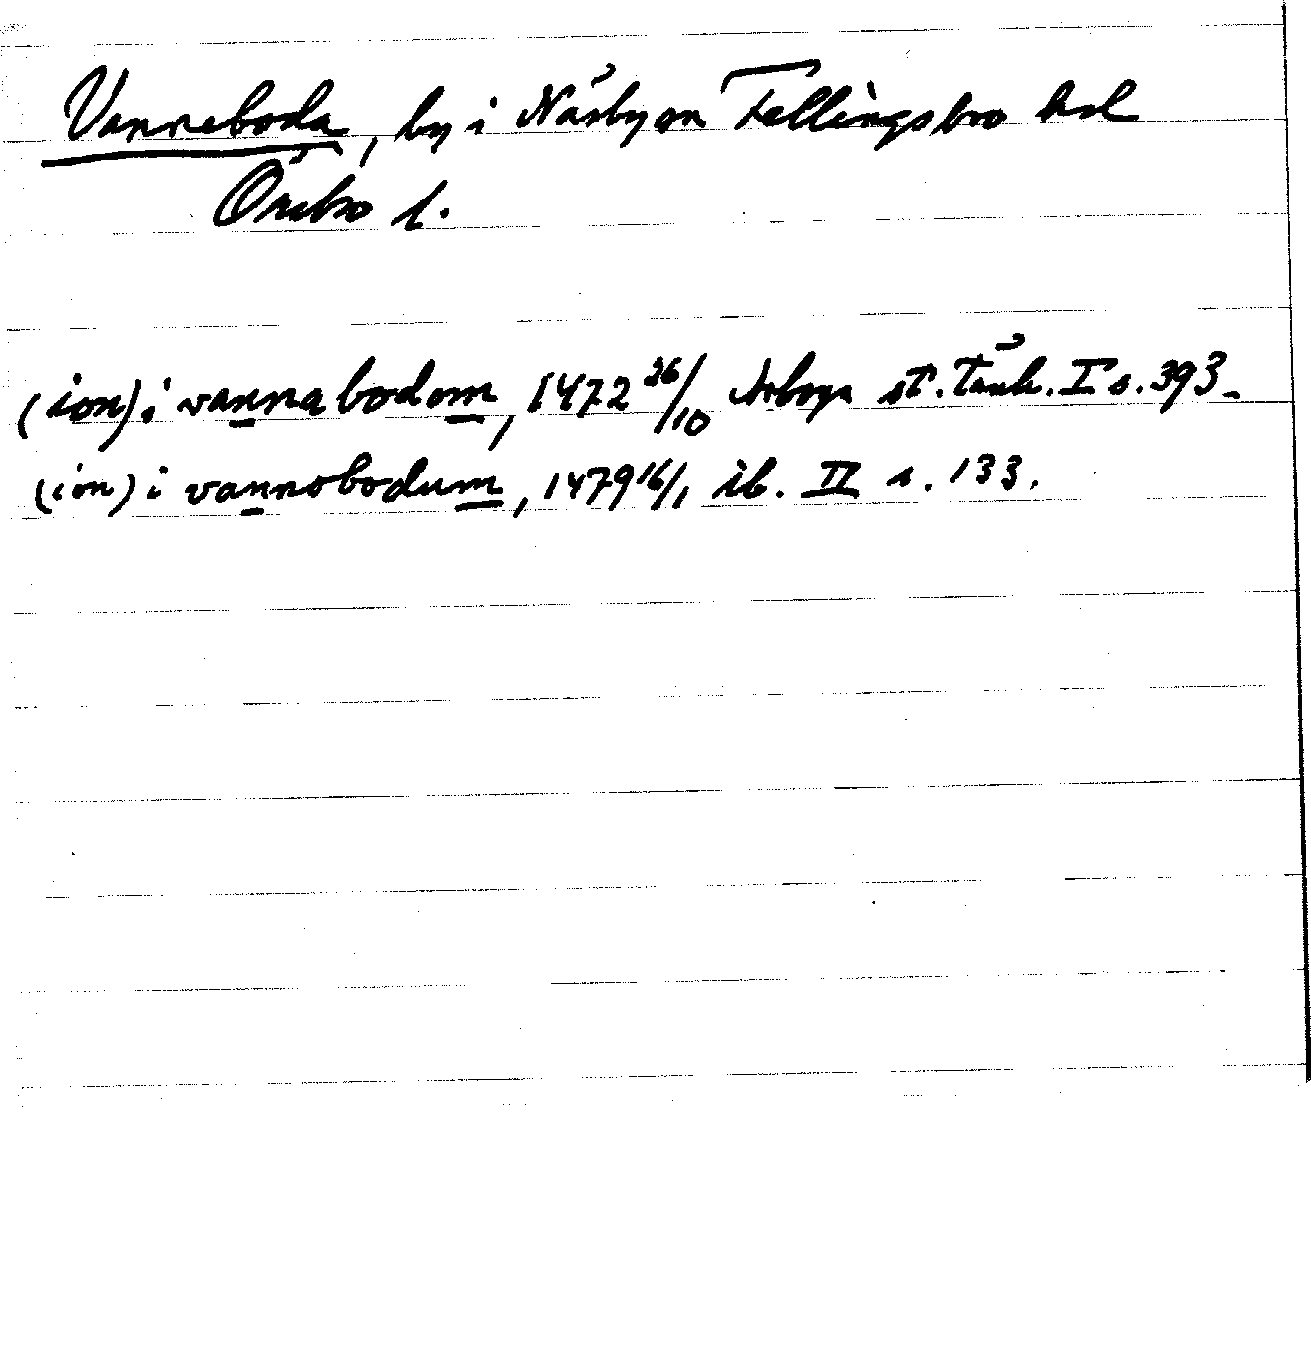 Vanneboda, by i Näsby sn Fellingsbro hd
Örebro l.
(ion) i vanna bodom, 1472 26/10 Arboga st. Tänk. I s. 393.
(ion) i vannobodum, 1479 16/1 ib. II s. 133.